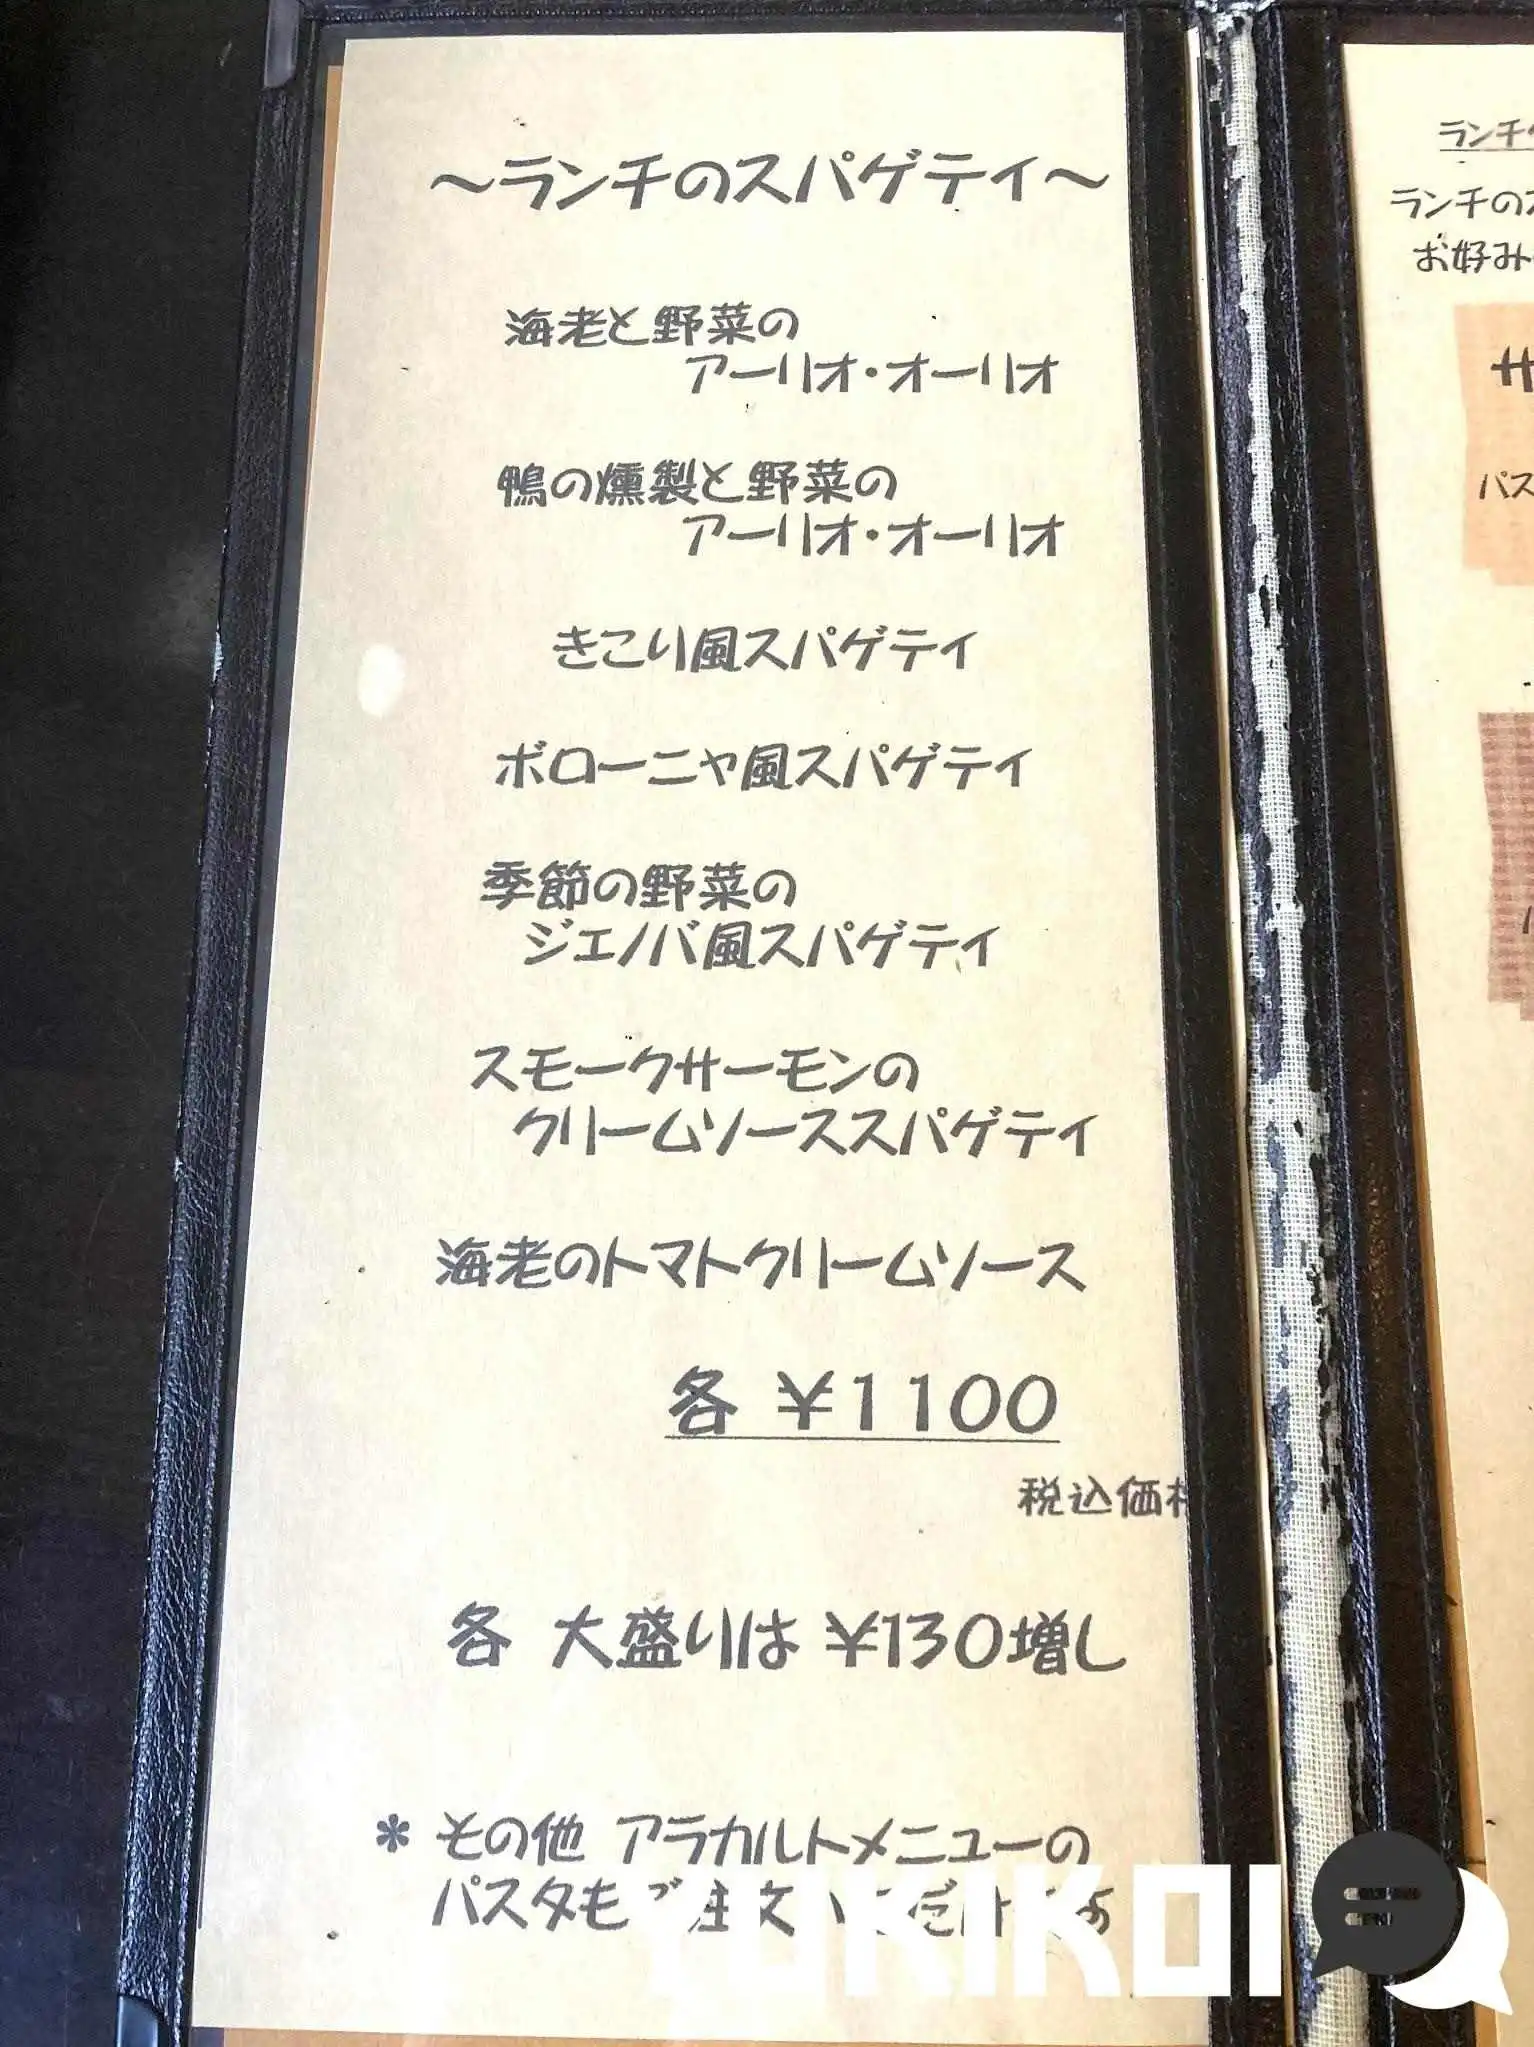 ~ランチのスパゲティ~
海老と野菜の
アーリオ・オーリオ
鴨の燻製と野菜の
アーリオ・オーリオ
きこり風スパゲティ
ボローニャ風スパゲティ
季節の野菜の
ジェノバ風スパゲティ
スモークサーモンの
クリームソーススパゲティ
海老のトマトクリームソース
各 ¥1100
税込価格
各 大盛りは ¥130増し
* その他 アラカルトメニューの
パスタもご注文
YUKIKOI
ランチ
ランチの
お好み
サ
パス